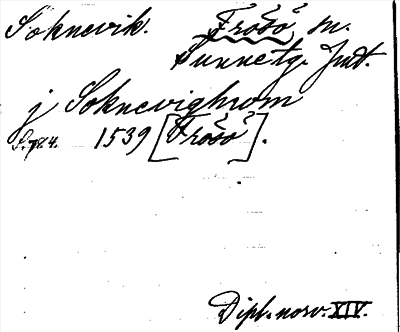 Soknevik. Frösö sn.
Sunne tg. Jmt.
j Soknevighwom
S. 784. 1539 [Frösö].
Dipl. norv. XIV.